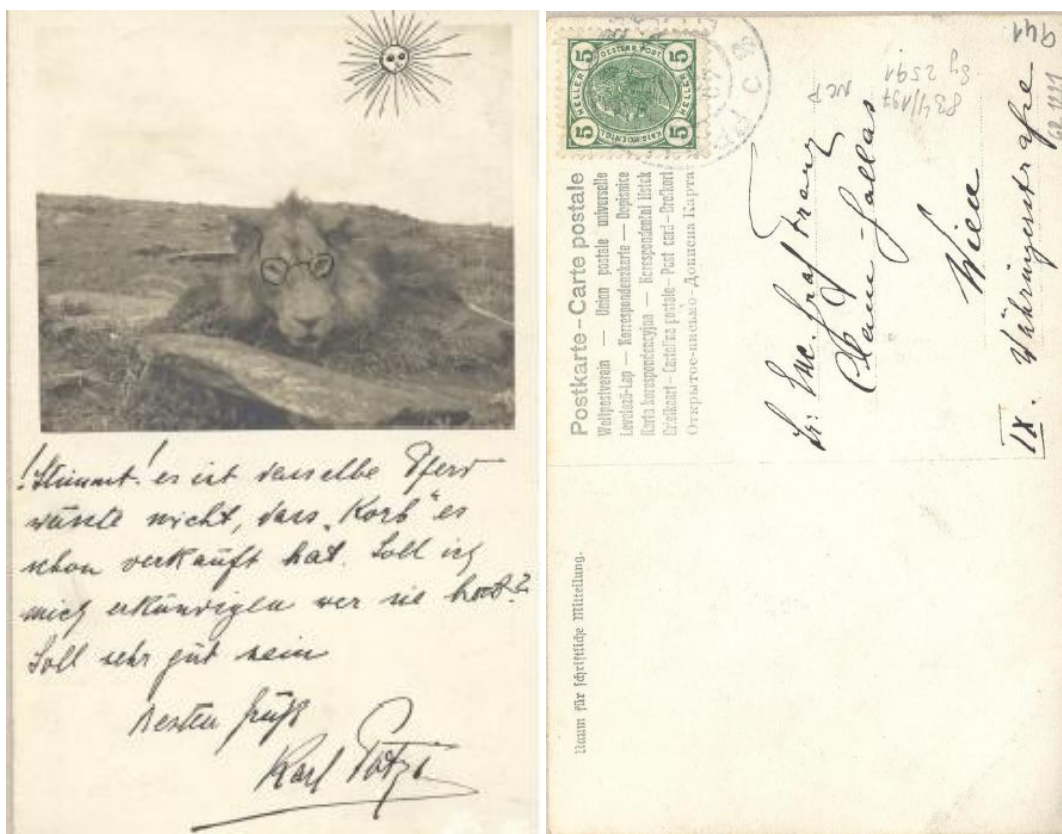 ! Stimmt! es ist dasselbe Pferd
wusste nicht, dass „Korb“ es
schon verkauft hat. Soll ich
mich erkundigen wer sie hat?
Soll sehr gut sein
Besten Gruß
Karl
5 OESTERR. POST. 5
HELLER HELLER
5 KAIS. KOENIGL. 5
Postkarte - Carte postale
Weltpostverein — Union postale universelle
Levelező-Lap — Korrespondenzkarte — Dopisnice
Karta korespondencyjna — Korespondentni listek
Briefkaart — Cartolina postale — Post card — Brefkort
Открытое письмо - Дописна Карта
Sr: Exc. Graf Franz
Clam-Gallas
Wien
IX. Währingerstraße
941
Sg 2591
834/197
NCP
Raum für schriftliche Mitteilung.